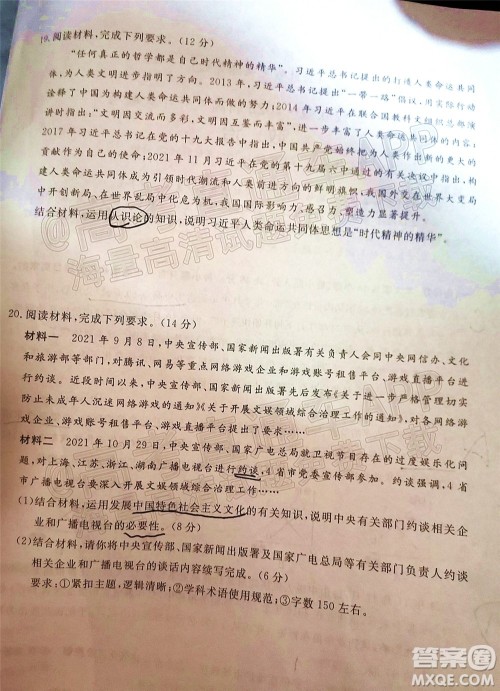 19.阅读材料,完成下列要求。(12分)
“任何真正的哲学都是自己时代精神的精华”。习近平总书记提出的打造人类命运共同
体,为人类文明进步指明了方向。2013年,习近平总书记提出“一带一路”倡议,用实际行动
诠释了中国为构建人类命运共同体而做的努力;2014年习近平在联合国教科文组织总部演
讲时指出:“文明因交流而多彩,文明因互鉴而丰富
2017年习近平总书记在党的十九大报告中指出,中国共产党始终把为人类作出新的更大的
贡献作为自己的使命;2021年11月习近平在党的第十九届六中通过的决议中指出,构
建人类命运共同体成为引领时代潮流和人类前进方向的鲜明旗帜,我国在世界大变局
中开创新局、在世界乱局中化危为机,我国国际影响力、感召力、塑造力显著提升。
结合材料,运用认识论的知识,说明习近平人类命运共同体思想是“时代精神的精华”。
20.阅读材料,完成下列要求。(14分)
材料一 2021年9月8日,中央宣传部、国家新闻出版署有关负责人会同中央网信办、文化
和旅游部等部门,对腾讯、网易等重点网络游戏企业和游戏账号租售平台、游戏直播平台进
行约谈。近年来,中央宣传部、国家新闻出版署先后发布《关于进一步严格管理切实
防止未成年人沉迷网络游戏的通知》《关于开展文娱领域综合治理工作的通知》,对各网络游
戏企业、游戏账号租售平台、游戏直播平台提出了要求……
材料二 2021年10月29日,中央宣传部、国家广电总局就卫视节目存在的过度娱乐化问
题,对上海、江苏、浙江、湖南广播电视台进行约谈,4省市党委宣传部参加。约谈强调,4省
市广播电视台要深入开展文娱领域综合治理工作……
(1)结合材料,运用发展中国特色社会主义文化的知识,说明中央有关部门约谈相关企
业和广播电视台的必要性。(8分)
(2)结合材料,请你将中央宣传部、国家新闻出版署及国家广电总局等有关部门负责人约谈
相关企业和广播电视台的谈话内容续写完成。(6分)
要求:①紧扣主题,逻辑清晰;②学科术语使用规范;③字数150左右。
答案圈
MXQE.COM